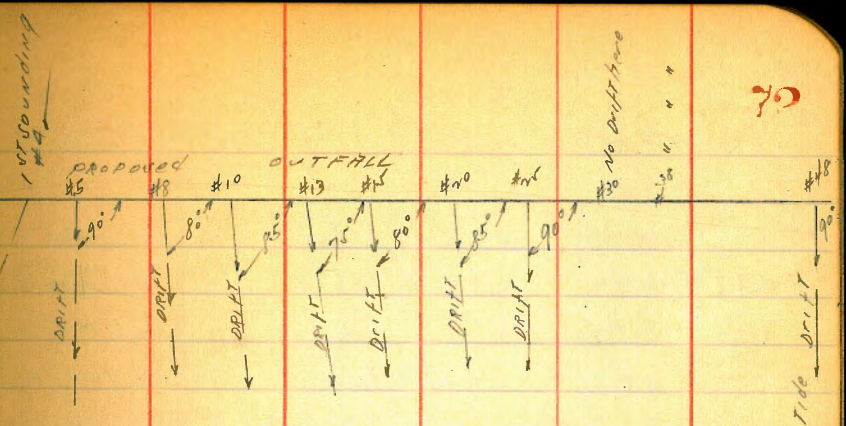 1ST SOUNDING
#4
PROPOSED OUTFALL
#5 #8 #10 #13 #15 #20 #25 #30 No Drift here
" " "
#48
90° 80° 85° 75° 80° 85° 90° 90°
DRIFT DRIFT DRIFT DRIFT DRIFT DRIFT DRIFT DRIFT
Tide